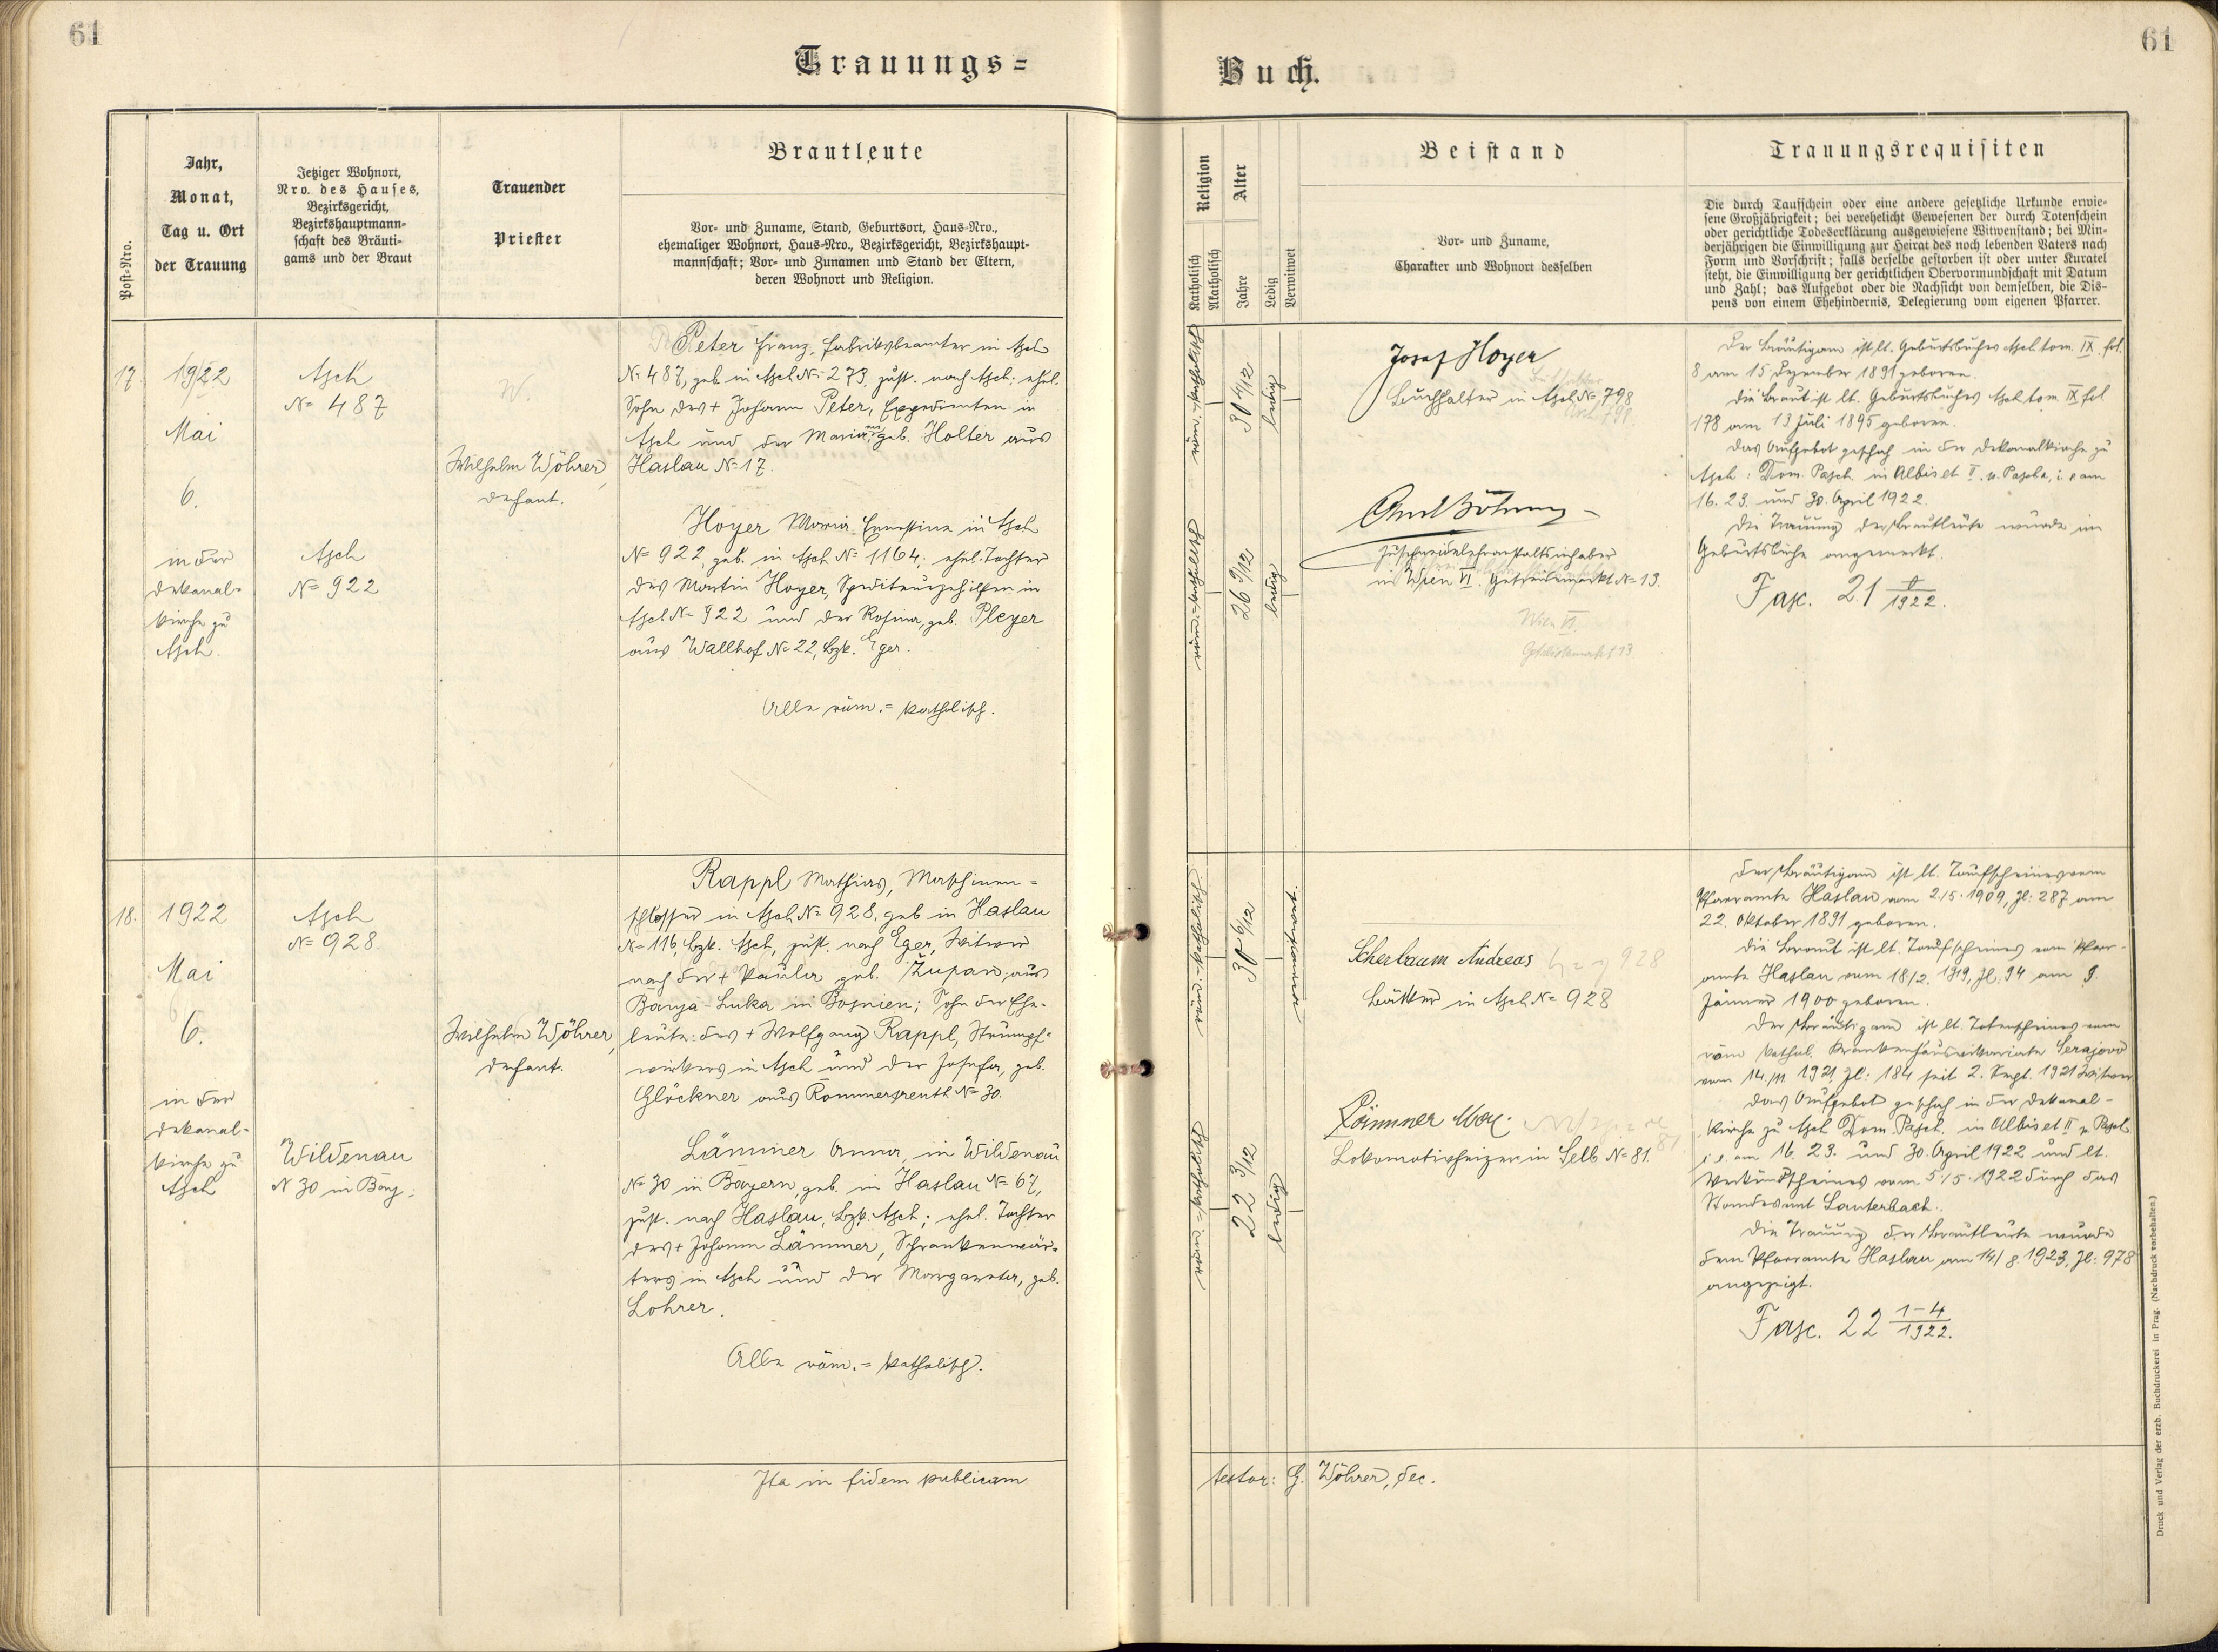 61
61
Trauungs=
Buch.
Post-Nro.
Jahr,
Monat,
Tag u. Ort
der Trauung
Jetziger Wohnort,
Nro. des Hauses,
Bezirksgericht,
Bezirkshauptmann-
schaft des Bräuti-
gams und der Braut
Trauender
Priester
Brautleute
Vor- und Zuname, Stand, Geburtsort, Haus-Nro.,
ehemaliger Wohnort, Haus-Nro., Bezirksgericht, Bezirkshaupt-
mannschaft; Vor- und Zunamen und Stand der Eltern,
deren Wohnort und Religion.
Religion
Katholisch
Akatholisch
Alter
Jahre
Ledig
Verwitwet
Beistand
Vor- und Zuname,
Charakter und Wohnort desselben
Trauungsrequisiten
Die durch Taufschein oder eine andere gesetzliche Urkunde erwie-
sene Großjährigkeit; bei verehelicht Gewesenen der durch Totenschein
oder gerichtliche Todeserklärung ausgewiesene Witwenstand; bei Min-
derjährigen die Einwilligung zur Heirat des noch lebenden Vaters nach
Form und Vorschrift; falls derselbe gestorben ist oder unter Kuratel
steht, die Einwilligung der gerichtlichen Obervormundschaft mit Datum
und Zahl; das Aufgebot oder die Nachsicht von demselben, die Dis-
pens von einem Ehehindernis, Delegierung vom eigenen Pfarrer.
17.
1922
Mai
6.
in der
Dekanal-
kirche zu
Asch.
Asch
N= 487
Asch
N= 922
W.
Wilhelm Wöhrer,
Dechant.
Peter Franz, Fabriksbeamter in Asch
N= 487, geb. in Asch N= 273, zust. nach Asch; ehel.
Sohn des + Johann Peter, Expedienten in
Asch und der Maria, geb. Holter aus
Haslau N= 17.
Hoyer Maria Ernestine in Asch
N= 922, geb. in Asch N= 1164; ehel. Tochter
des Martin Hoyer, Spediteurgehilfen in
Asch N= 922 und der Rosina, geb. Pleyer
aus Wallhof N= 22, Bzk. Eger.
Alle röm.= katholisch.
30 4/12
ledig
26 9/12
ledig
Josef Hoyer
Buchhalter in Asch N= 798
798.
Zuschneidelehranstaltsinhaber
in Wien VI. Getreidemarkt N= 13.
Wien VI.
Getreidemarkt 13
Der Bräutigam ist lt. Geburtsbuches Asch tom. IX. fol.
8 am 15 Dezember 1891 geboren.
Die Braut ist lt. Geburtsbuches Asch tom IX fol
178 am 13 Juli 1895 geboren.
Das Aufgebot geschah in der Dekanalkirche zu
Asch: Dom. Pasch. in Albis et II. p. Pascha, i. e am
16. 23. und 30. April 1922.
Die Trauung der Brautleute wurde im
Geburtsbuche angemerkt.
Fasc. 21 /1922.
18.
1922
Mai
6.
in der
Dekanal-
kirche zu
Asch
Asch
N= 928.
Wildenau
N 30 in Bay:
Wilhelm Wöhrer,
Dechant.
Rappl Mathias, Maschinen=
schlosser in Asch N= 928, geb in Haslau
N= 116, Bzk. Asch, zust. nach Eger, Witwer
nach der + Paula geb. Župan, aus
Banja-Luka in Bosnien; Sohn der Ehe-
leute: des + Wolfgang Rappl, Strumpf=
wirkers in Asch und der Josefa, geb.
Glöckner aus Rommersreuth N= 30.
Lämmer Anna, in Wildenau
N= 30 in Bayern, geb. in Haslau N= 67,
zust. nach Haslau, Bzk. Asch; ehel. Tochter
des + Johann Lämmer, Schrankenwär-
ters in Asch und der Margareta, geb.
Lohrer.
Alle röm.= katholisch.
30 6/12
verwitwet
22 3/12
ledig
Scherbaum Andreas
928
Bäcker in Asch N= 928
Lämmer Max.
81
Lokomotivheizer in Selb N= 81.
Der Bräutigam ist lt. Taufscheines vom
Pfarramte Haslau vom 2./5. 1909, Zl: 287 am
22. Oktober 1891 geboren.
Die Braut ist lt. Taufscheines vom Pfarr-
amte Haslau vom 18/2. 1919, Zl. 94 am 9.
Jänner 1900 geboren.
Der Bräutigam ist lt. Totenscheines vom
röm kathol. Krankenhausvikariate Serajevo
vom 14./11 1921, Zl: 184 seit 2. Sept. 1921 Witwer
Das Aufgebot geschah in der Dekanal-
kirche zu Asch Dom. Pasch. in Albis et II p. Pasch
i. e. am 16. 23. und 30. April 1922 und lt.
Verkündscheines vom 5./5. 1922 durch das
Standesamt Lauterbach.
Die Trauung der Brautleute wurde
dem Pfarramte Haslau am 14/8. 1923, Zl: 978
angezeigt.
Fasc. 22 1-4/1922.
Ita in fidem publicam
testor: G. Wöhrer, Dec.
Druck und Verlag der erzb. Buchdruckerei in Prag. (Nachdruck vorbehalten.)